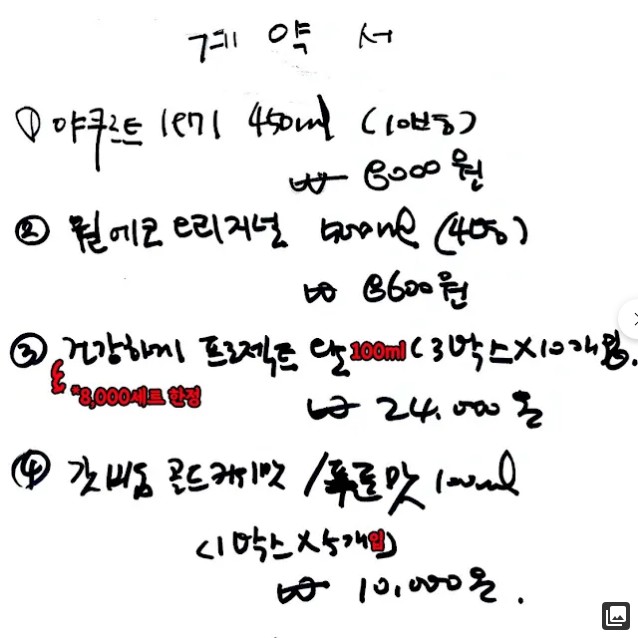 계약서
① 야쿠르트 1970 450ml (10번들)
₩ 8000원
② 월에코 오리지널 500ml (4번들)
₩ 8600원
③ 건강하게 프로젝트 달 100ml (3박스X10개입).
*8,000세트 한정
₩ 24.000원
④ 갓비움 골드키위맛/푸룬맛 100ml
(1박스X5개입)
₩ 10,000원.